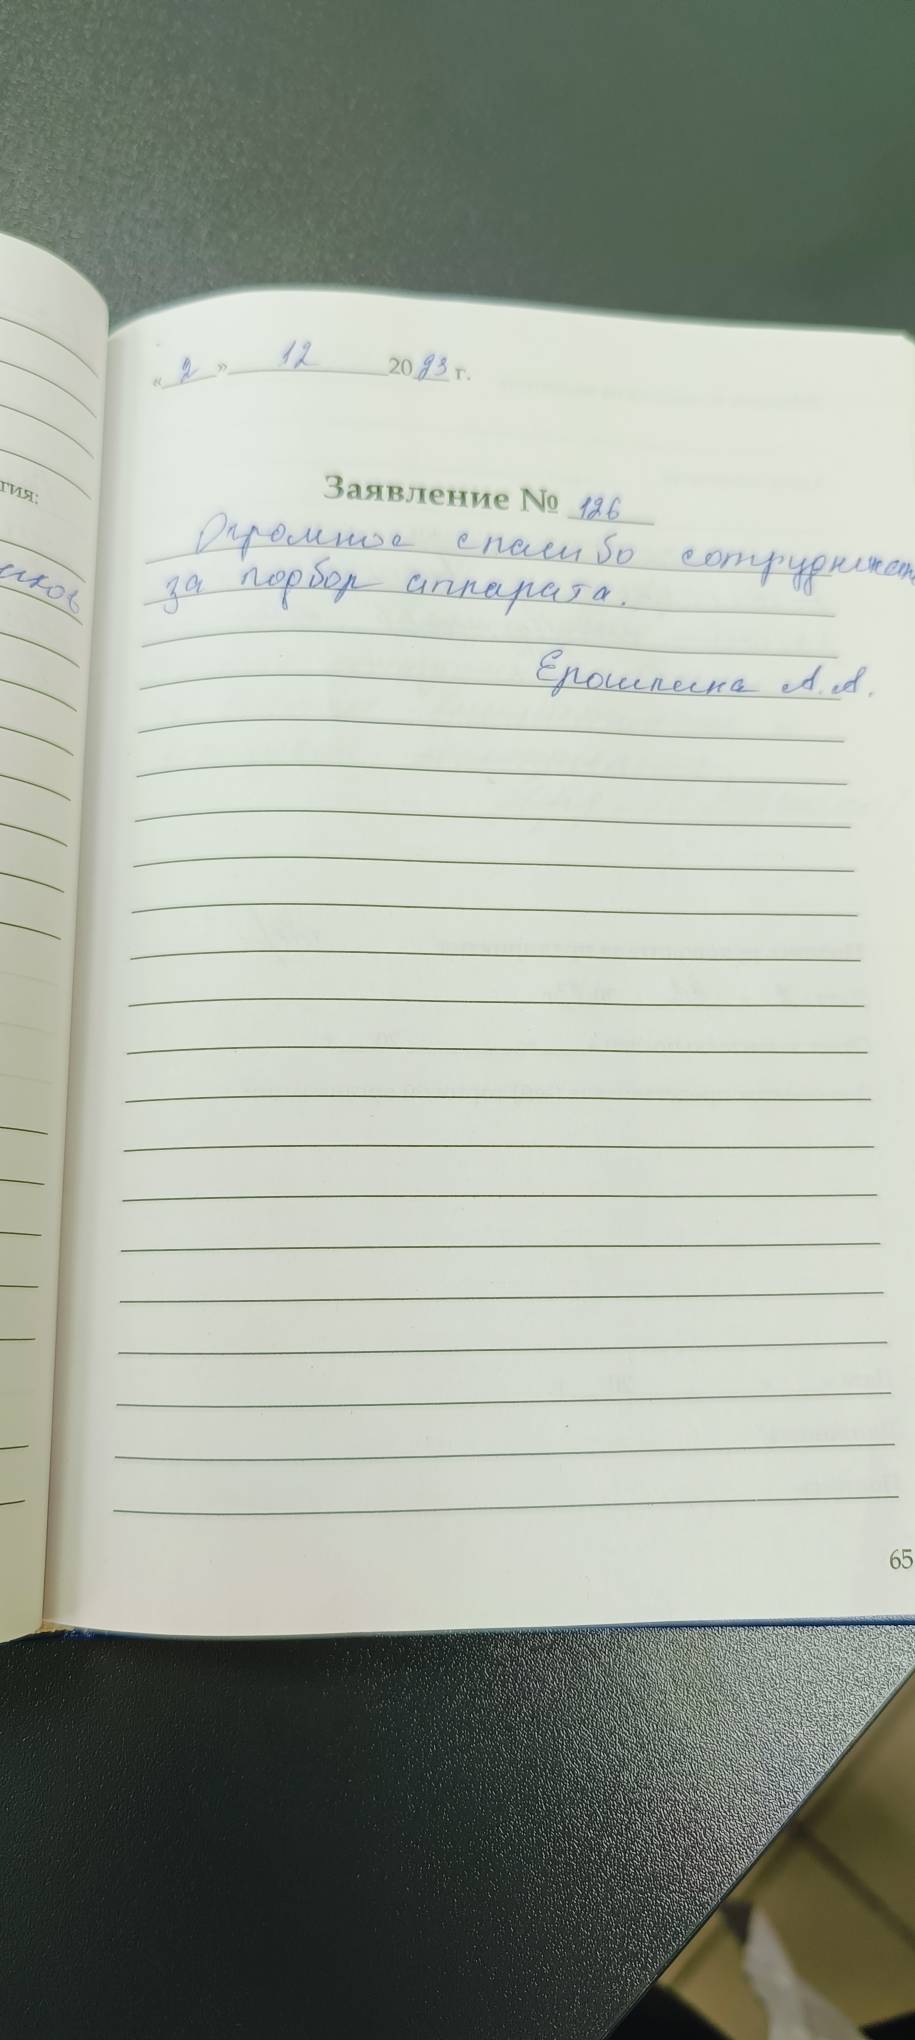 гия:
« 2 » 12 2023 г.
Заявление № 126
Огромное спасибо сотрудникам
за подбор аппарата.
А.А.
65